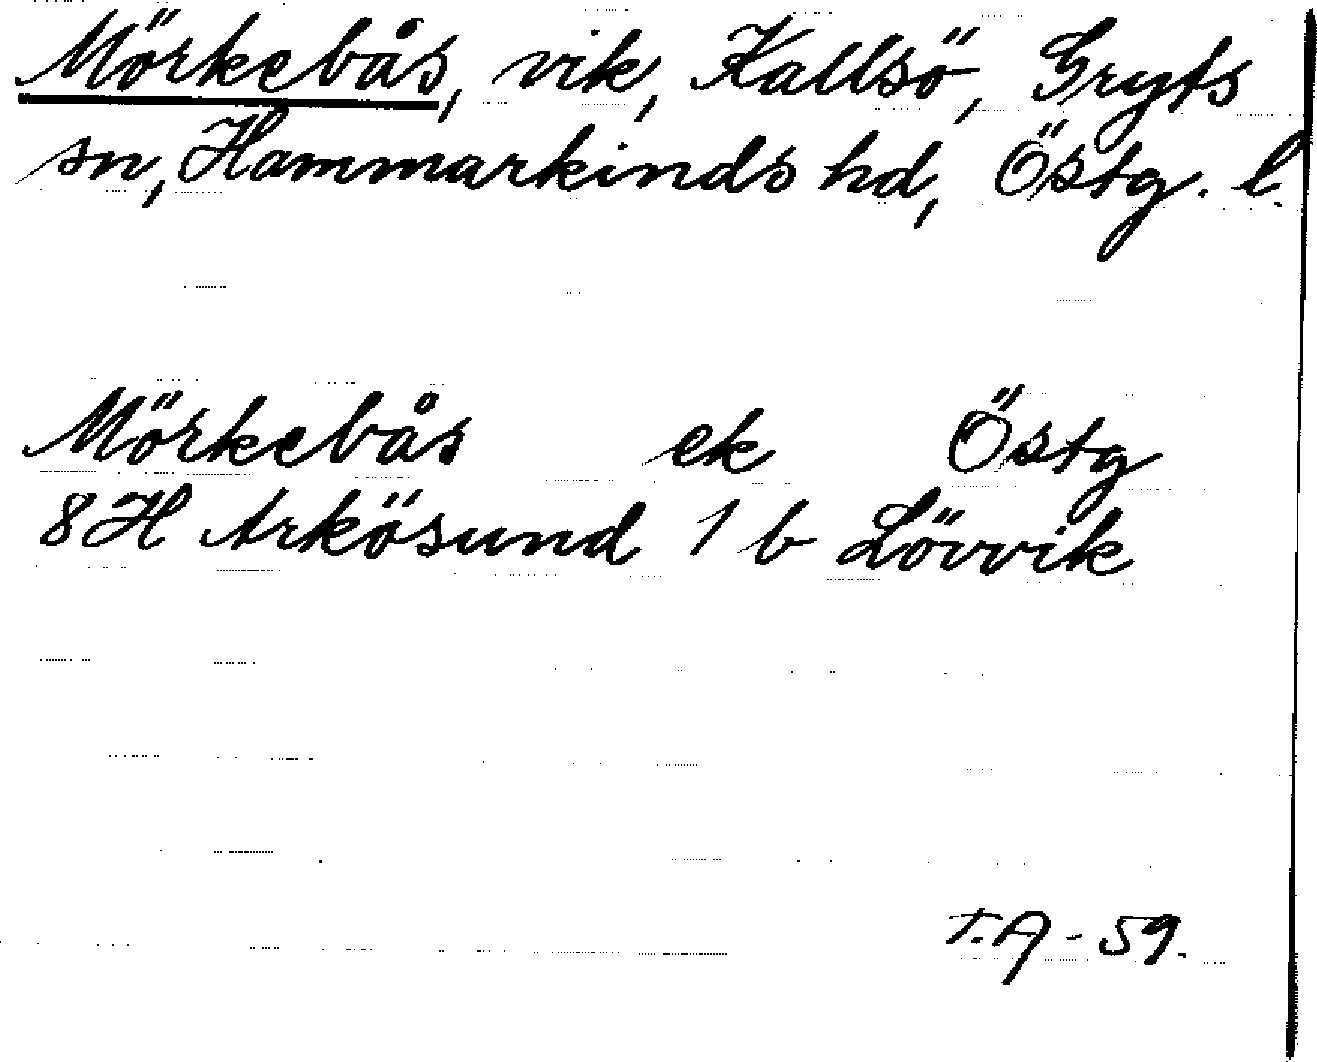 Mörkebås, vik, Kallsö, Gryts
sn, Hammarkinds hd, Östg. l.
Mörkebås ek Östg
8H Arkösund 1 b Lövvik
T.A - 59.